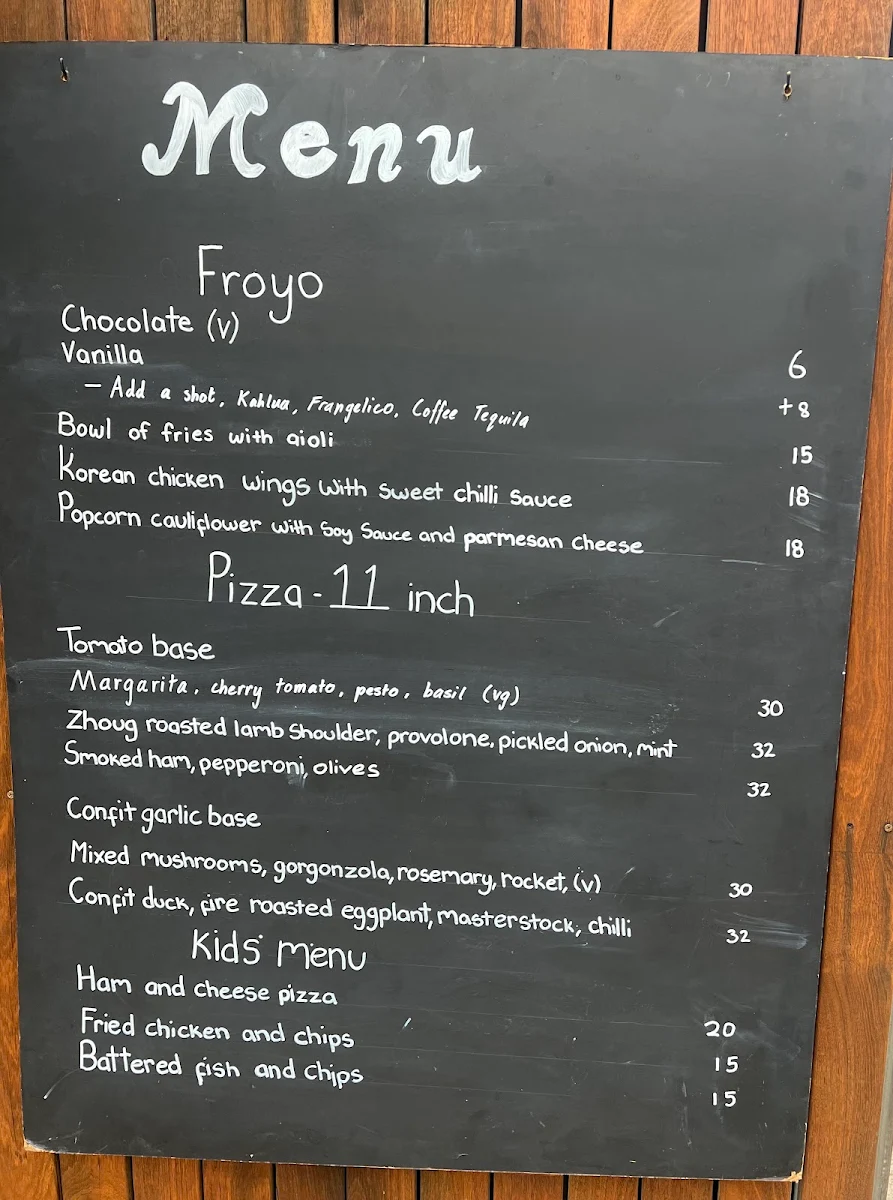 Menu
Froyo
Chocolate (v)
Vanilla 6
- Add a shot, Kahlua, Frangelico, Coffee Tequila +8
Bowl of fries with aioli 15
Korean chicken wings with sweet chilli sauce 18
Popcorn cauliflower with Soy Sauce and parmesan cheese 18
Pizza - 11 inch
Tomato base
Margarita, cherry tomato, pesto, basil (vg) 30
Zhoug roasted lamb shoulder, provolone, pickled onion, mint 32
Smoked ham, pepperoni, olives 32
Confit garlic base
Mixed mushrooms, gorgonzola, rosemary, rocket, (v) 30
Confit duck, fire roasted eggplant, masterstock, chilli 32
Kids' menu
Ham and cheese pizza 20
Fried chicken and chips 15
Battered fish and chips 15